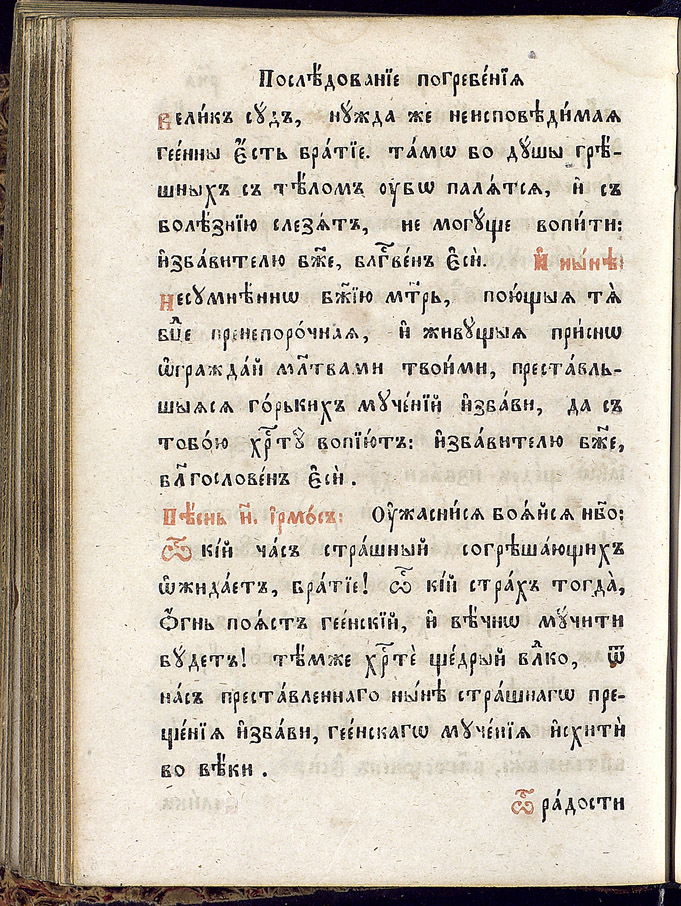 Послѣ́дованїе погребе́нїѧ
Вели́къ сꙋ́дъ, нꙋ́жда же неисповѣди́маѧ
гее́нны є҆́сть бра́тїе. та́мѡ бо дꙋ́шы грѣ́-
шныхъ съ тѣ́ломъ ᲂу҆́бѡ палѧ́тсѧ, и҆ съ
болѣ́знїю слезѧ́тъ, не могꙋ́ще вопи́ти:
и҆зба́вителю бж҃е, блг҇ве́нъ є҆сѝ. И҆ ны́нѣ:
Несꙋмнѣ́ннѡ бж҃їю мт҃рь, пою́щыѧ тѧ̀
бц҃е пренепоро́чнаѧ, и҆ живꙋ́щыѧ при́снѡ
ѡ҆гражда́й мл҃твами твои́ми, преста́вль-
шыѧсѧ го́рькихъ мꙋче́нїй и҆зба́ви, да съ
тобо́ю хр҇тꙋ̀ вопїю́тъ: и҆зба́вителю бж҃е,
бл҃гослове́нъ є҆сѝ.
Пѣ́снь и҃. і҆рмо́съ: Оу҆жасни́сѧ боѧ́йсѧ нб҃о:
Ѽ кі́й ча́съ стра́шный согрѣша́ющихъ
ѡ҆жида́етъ, бра́тїе! ѽ кі́й стра́хъ тогда̀,
ѻ҆́гнь поѧ́стъ гее́нскїй, и҆ вѣ́чнѡ мꙋ́чити
бꙋ́детъ! тѣ́мже хр҇тѐ ще́дрый вл҃ко, ѿ
на́съ преста́вленнаго ны́нѣ стра́шнагѡ пре-
ще́нїѧ и҆зба́ви, гее́нскагѡ мꙋче́нїѧ и҆схитѝ
во вѣ́ки.
Ѽ ра́дости